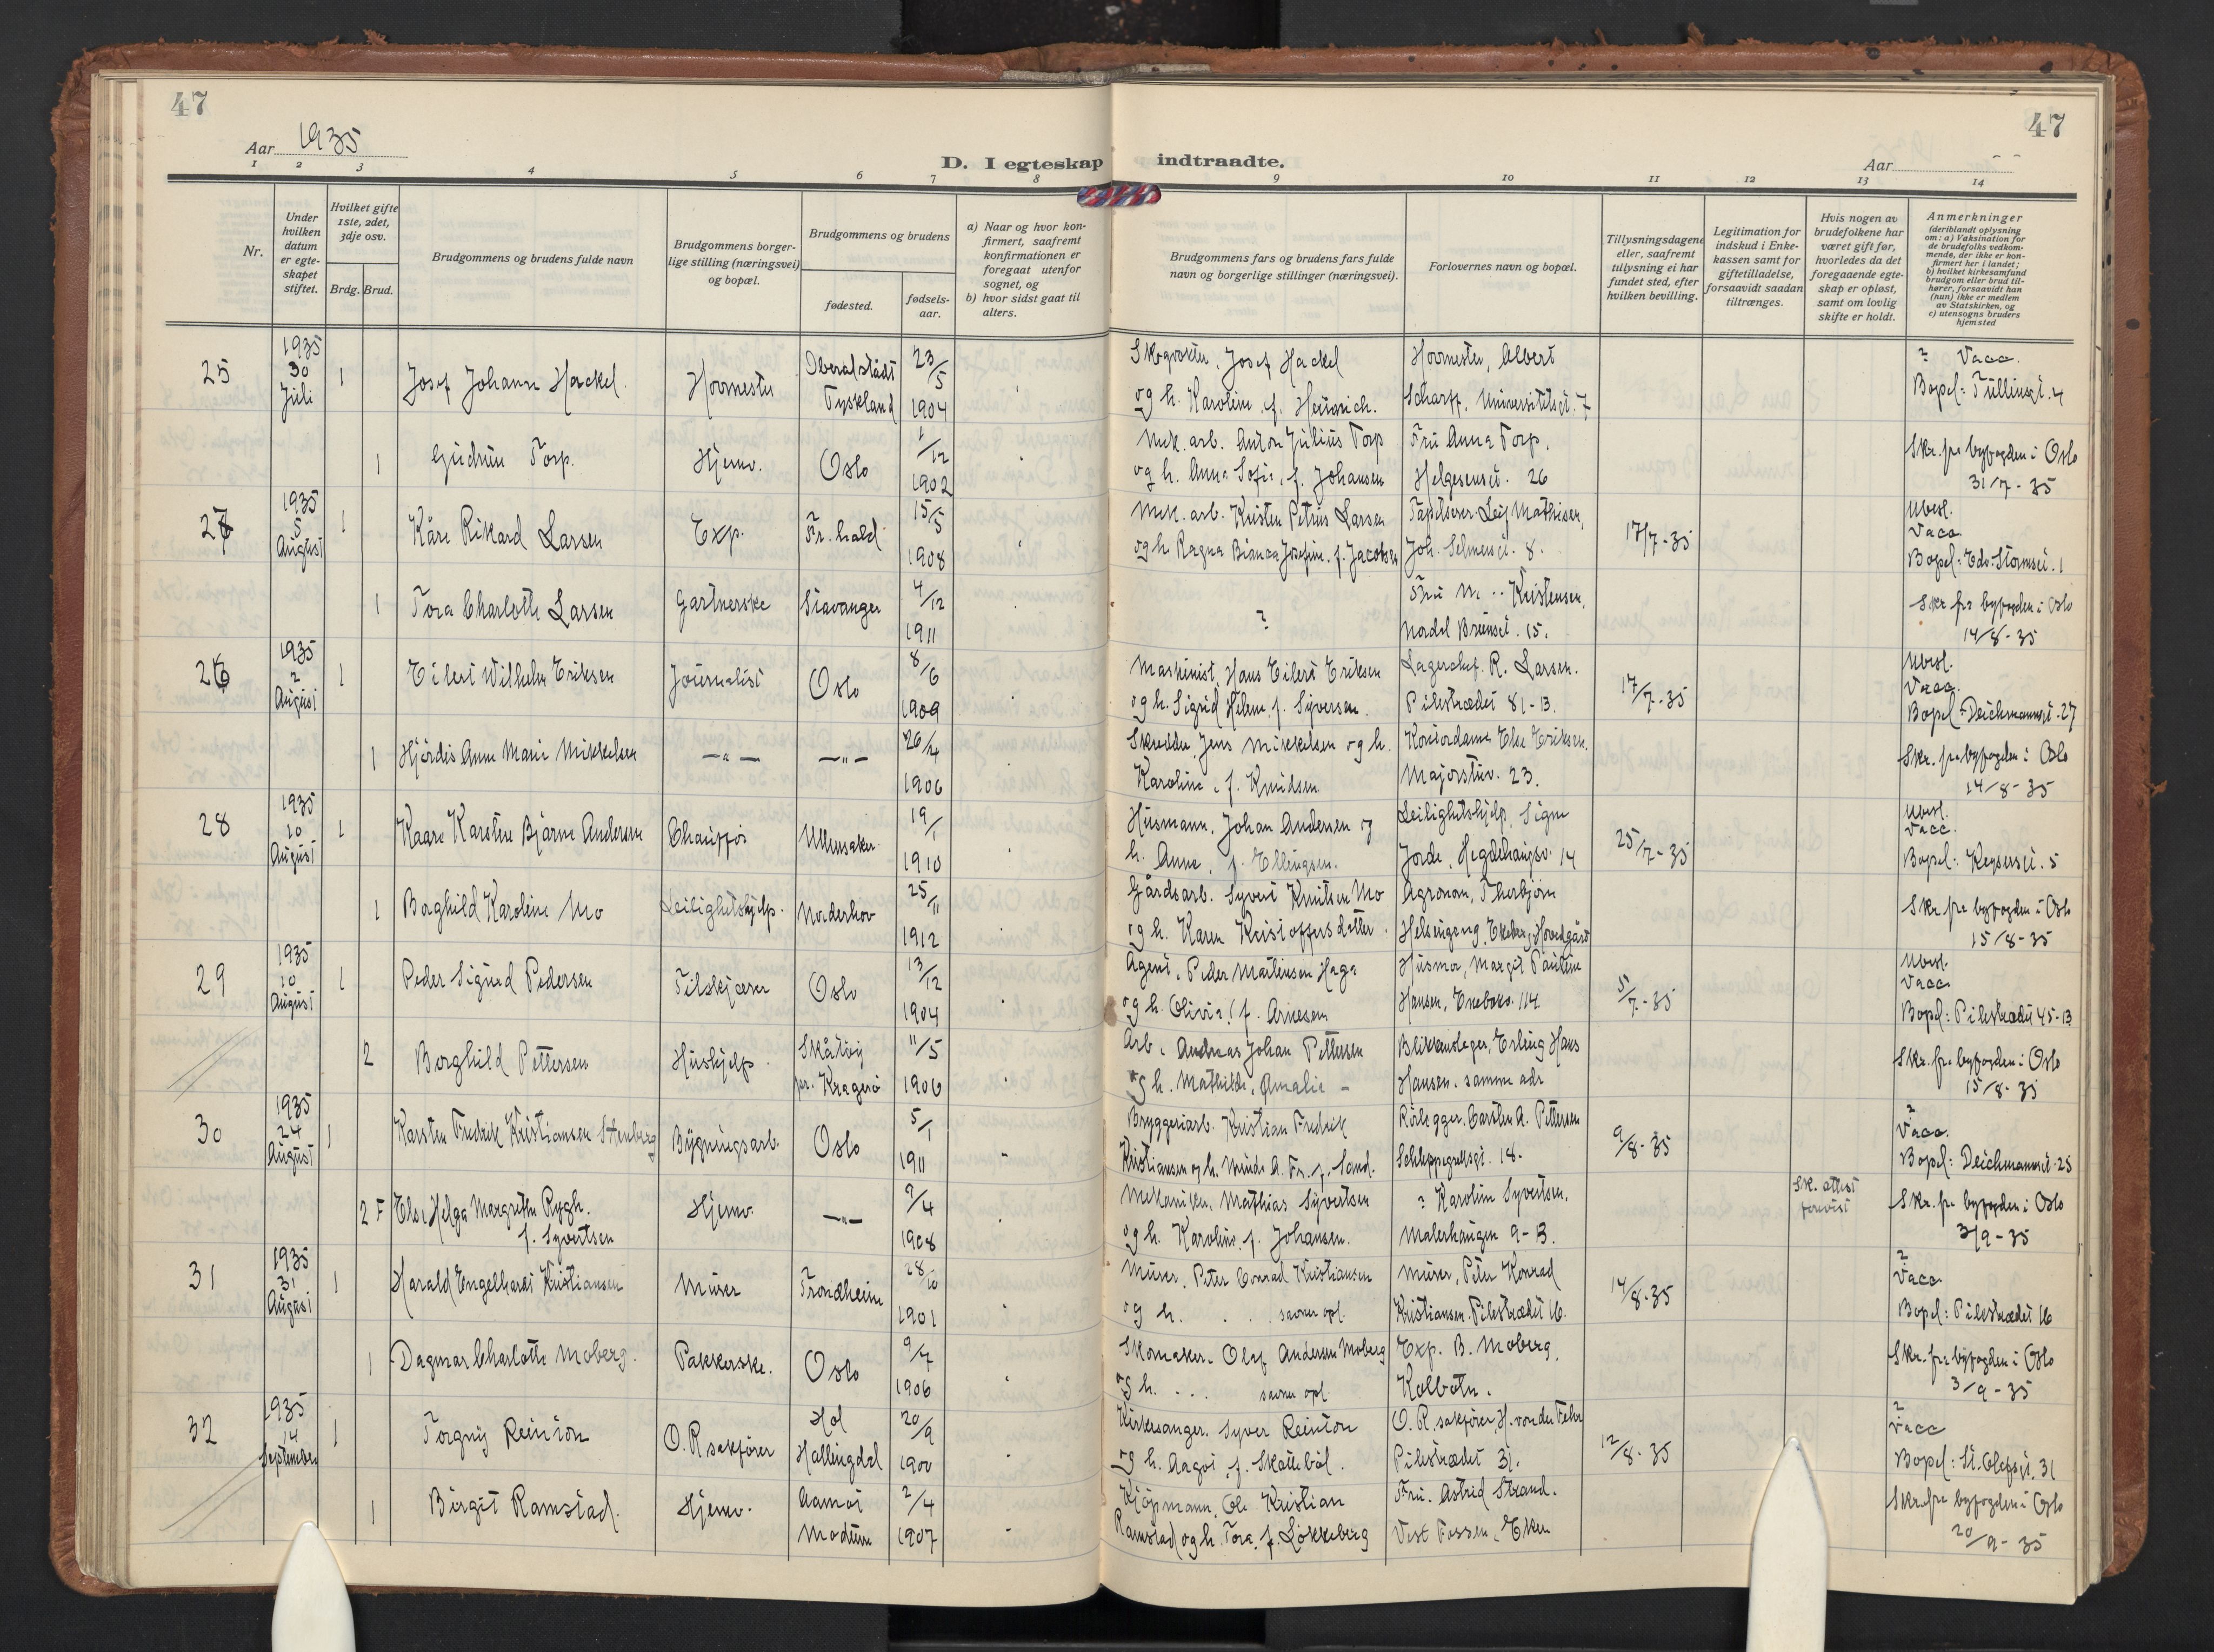 47
47
Aar 1935
D. I egteskap indtraadte.
Aar
1 2 3 4 5 6 7 8 9 10 11 12 13 14
Nr.
Under hvilken datum er egteskapet stiftet.
Hvilket gifte 1ste, 2det, 3dje osv.
Brdg. Brud.
Brudgommens og brudens fulde navn
Brudgommens borgerlige stilling (næringsvei) og bopæl.
Brudgommens og brudens
fødested.
fødselsaar.
a) Naar og hvor konfirmert, saafremt konfirmationen er foregaat utenfor sognet, og
b) hvor sidst gaat til alters.
Brudgommens fars og brudens fars fulde navn og borgerlige stillinger (næringsvei).
Forlovernes navn og bopæl.
Tillysningsdagene eller, saafremt tillysning ei har fundet sted, efter hvilken bevilling.
Legitimation for indskud i Enkekassen samt for giftetilladelse, forsaavidt saadan tiltrænges.
Hvis nogen av brudefolkene har været gift før, hvorledes da det foregaaende egteskap er opløst, samt om lovlig skifte er holdt.
Anmerkninger
(deriblandt oplysning om: a) Vaksination for de brudefolks vedkommende, der ikke er konfirmert her i landet; b) hvilket kirkesamfund brudgom eller brud tilhører, forsaavidt han (hun) ikke er medlem av Statskirken, og c) utensogns bruders hjemsted
25 1935 30 Juli 1 Josef Johann Hackel. Hovmester Oberalstadt Tyskland 23/5 1904 Skogvokter, Josef Hackel og h. Karoline, f. Heinrich. Hovmester, Albert Scharff, Universitetsgt. 7 ? Vacc. Bopel: Tullinsgt. 4
1 Gudrun Torp. Hjemv. Oslo 1/12 1902 Mek. arb. Anton Julius Torp og h. Anna Sofie, f. Johansen Fru Anna Torp, Helgesensgt. 26 Skr. fra byfogden i Oslo 31/7-35
27 1935 5 August 1 Kåre Rikard Larsen Exp. Fr.hald 15/5 1908 Mek. arb. Kristen Petrus Larsen og h. Ragna Bianca Josefine, f. Jacobsen Tapetserer Leif Mathisen, Joh. Selmersgt. 8. 17/7-35 Ubesl. Vacc. Bopel: Edv. Stormsgt. 1
1 Tora Charlotte Larsen Gartnerske Stavanger 4/12 1911 ? Fru M. Kristensen, Nordal Brunsgt. 15. Skr. fra byfogden i Oslo 14/8-35
26 1935 2 August 1 Eilert Wilhelm Eriksen Journalist Oslo 8/6 1909 Maskinist, Hans Eilert Eriksen og h. Sigrid Helene, f. Syversen. Lagerchef. R. Larsen. Pilestrædet 81-B. 17/7-35 Ubesl. Vacc. Bopel: Deichmannsgt. 27
1 Hjørdis Anne Marie Mikkelsen —"— —"— 26/4 1906 Skredder Jens Mikkelsen og h. Karoline, f. Knudsen Kontordame Else Eriksen. Majorstuv. 23. Skr. fra byfogden i Oslo 14/8-35
28 1935 10 August 1 Kaare Karsten Bjarne Andersen Chauffør Ullensaker 19/1 1910 Husmann, Johan Andersen og h. Anne, f. Ellingsen. Leilighetshjelp, Signe Jorde, Hegdehaugsv. 14 25/7-35 Ubesl. Vacc. Bopel: Keysersgt. 5
1 Borghild Karoline Mo Leilighetshjelp. Norderhov 25/11 1912 Gårdsarb. Syvert Knutsen Mo og h. Karen Kristoffersdatter. Agronom, Thorbjørn Helsingeng, Ekeberg Hovedgård Skr. fra byfogden i Oslo 15/8-35
29 1935 10 August 1 Peder Sigurd Pedersen Tilskjærer Oslo 13/12 1904 Agent, Peder Martinsen Haga og h. Olivia, f. Arnesen Husmor, Margit Pauline Hansen, Enebakv. 114 5/7-35 Ubesl. Vacc. Bopel: Pilestrædet 45-B
2 Borghild Pettersen Hushjelp. Skåtøy pr. Kragerø 11/5 1906 Arb. Andreas Johan Pettersen og h. Mathilde, Amalie - Blikkenslager, Erling Hans Hansen. samme adr Skr. fra byfogden i Oslo 15/8-35
30 1935 24 August 1 Karsten Fredrik Kristiansen Stenberg Bygningsarb. Oslo 5/1 1911 Bryggeriarb. Kristian Fredrik Kristiansen og h. Minda A. Fr. f. Sand. Rørlegger, Carsten A. Pettersen Schleppegrellsgt. 18. 9/8-35 ? Vacc. Bopel: Deichmannsgt. 25
2 F Else Helga Margrethe Rygh. f. Syvertsen Hjemv. —"— 9/4 1908 Mekaniker, Mathias Syvertsen og h. Karoline, f. Johansen. ? Karoline Syvertsen. Malerhaugen 9-B. Sk. attest forevist Skr. fra byfogden i Oslo 3/9-35
31 1935 31 August 1 Harald Engelhardt Kristiansen Murer Trondheim 28/10 1901 Murer, Peter Conrad Kristiansen og h. . . . savner opl. Murer, Peter Konrad Kristiansen. Pilestrædet 16. 14/8-35 ? Vacc Bopel: Pilestrædet 16
1 Dagmar Charlotte Moberg. Pakkerske. Oslo 9/7 1906 Skomaker, Olaf Andersen Moberg og h. . . . savner opl. Exp. B. Moberg, Kolbotn. Skr. fra byfogden i Oslo 3/9-35
32 1935 14 September 1 Torgny Reinton O.R.sakfører Hol Hallingdal 20/9 1900 Kirkesanger, Syver Reinton og h. Aagot, f. Skattebøl. O.R.sakfører, H. von der Fehr Pilestrædet 31. 12/8-35 ? Vacc Bopel: St. Olafsgt. 31
1 Birgit Ramstad. Hjemv. Aamot Modum 2/4 1907 Kjøpmann, Ole Kristian Ramstad og h. Tora, f. Løkkeberg Fru. Astrid Strand. Vest Fossen, Eker Skr. fra byfogden i Oslo 20/9-35